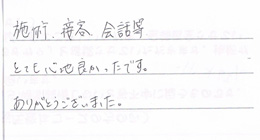 施術、接客、会話等
とても心地良かったです。
ありがとうございました。